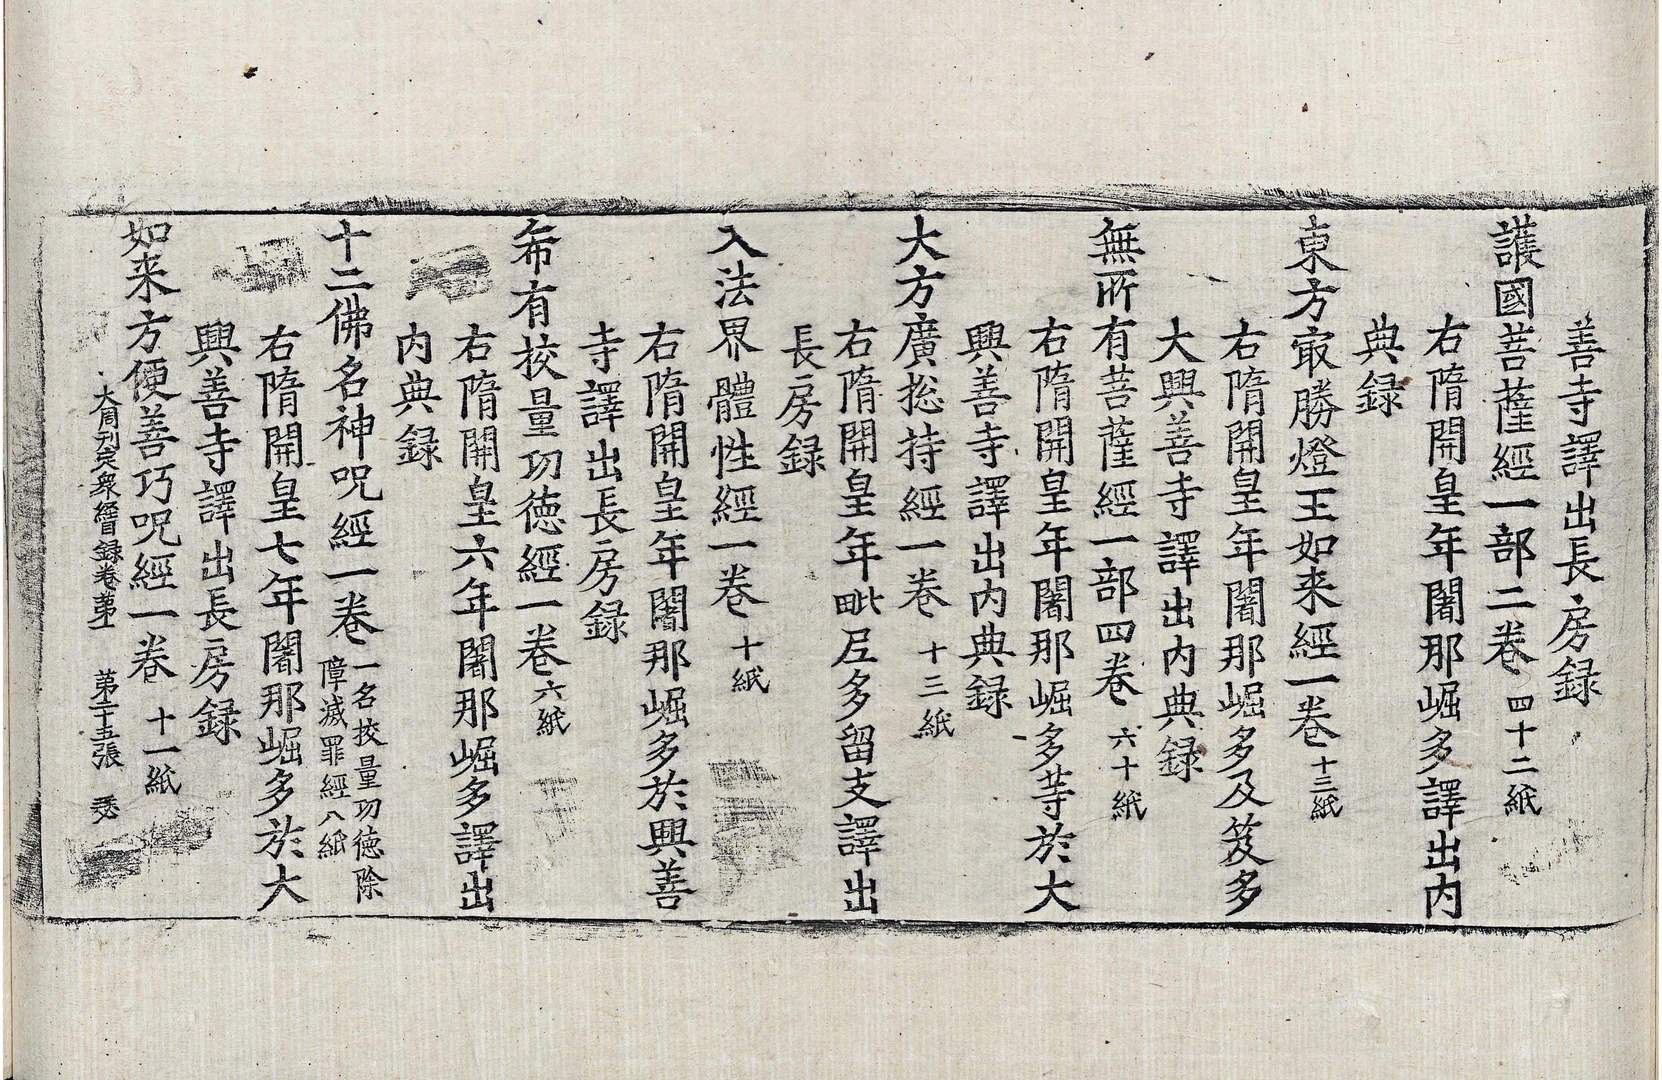 善寺譯出長房録
護國菩薩經一部二卷 四十二紙
右隋開皇年闍那崛多譯出内
典録
東方㝡勝燈王如来經一卷 十三紙
右隋開皇年闍那崛多及笈多
大興善寺譯出内典録
無所有菩薩經一部四卷 六十紙
右隋開皇年闍那崛多等於大
興善寺譯出内典録
大方廣捴持經一卷 十三紙
右隋開皇年毗尼多留支譯出
長房録
入法界體性經一卷 十紙
右隋開皇年闍那崛多於興善
寺譯出長房録
希有挍量功徳經一卷 六紙
右隋開皇六年闍那崛多譯出
内典録
十二佛名神呪經一卷 一名挍量功徳除
障滅罪經八紙
右隋開皇七年闍那崛多於大
興善寺譯出長房録
如来方便善巧呪經一卷 十一紙
大周刊定衆經目録卷苐一 苐二十五張